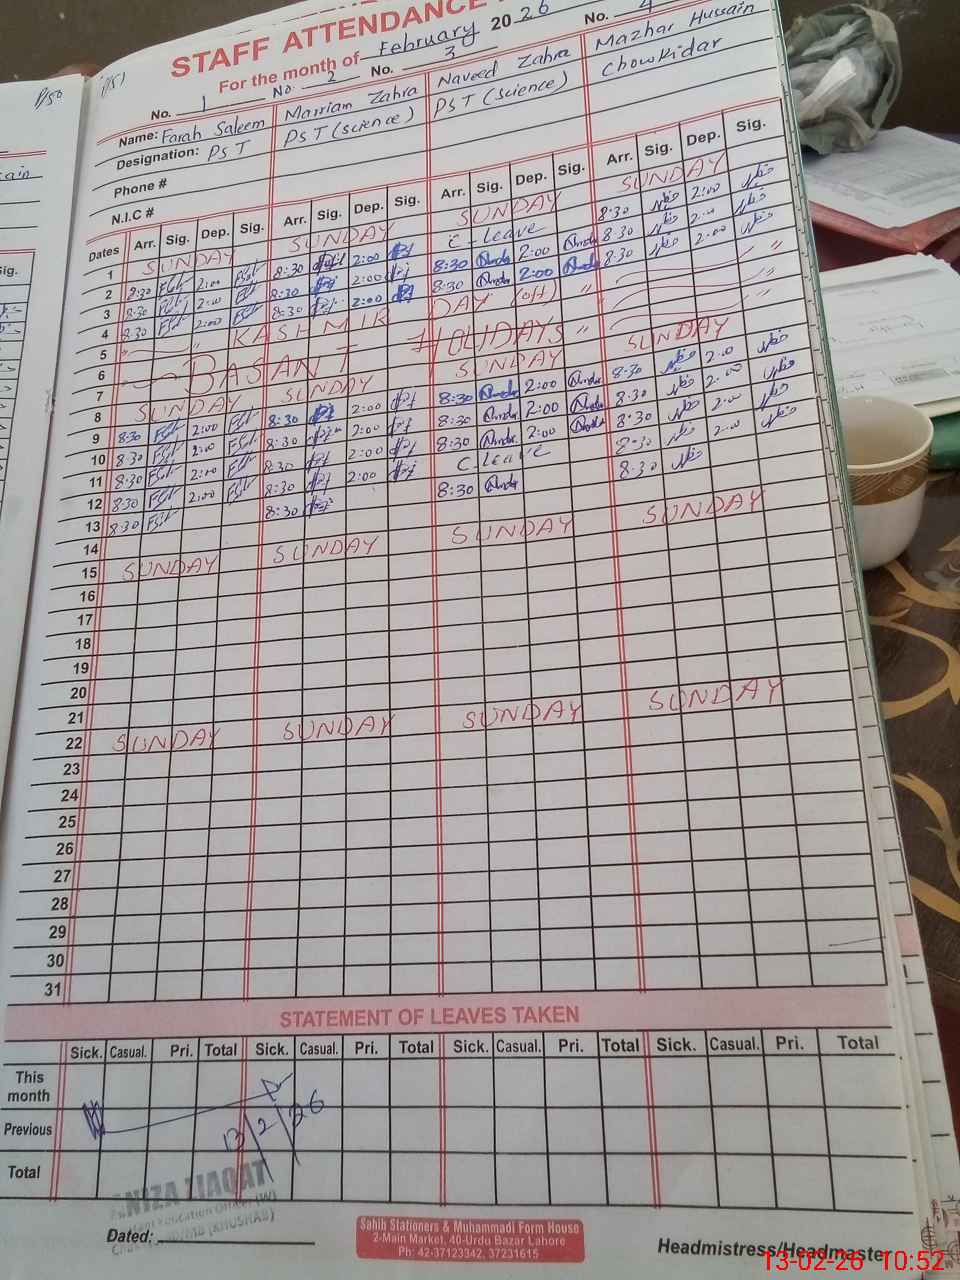 P/50
P/51
STAFF ATTENDANCE
For the month of February 2026
No. 1 No. 2 No. 3 No. 4
Name: Farah Saleem Marriam Zahra Naveed Zahra Mazhar Hussain
Designation: PST PST (science) PST (science) Chowkidar
Phone #
N.I.C #
Dates Arr. Sig. Dep. Sig. Arr. Sig. Dep. Sig. Arr. Sig. Dep. Sig. Arr. Sig. Dep. Sig.
1 SUNDAY SUNDAY SUNDAY SUNDAY
2 8:30 2:00 8:30 2:00 C-Leave 8:30 2:00
3 8:30 2:00 8:30 2:00 8:30 2:00 8:30 2:00
4 8:30 2:00 8:30 2:00 8:30 2:00 8:30 2:00
5 KASHMIR DAY (off)
6 BASANT HOLIDAYS
7
8 SUNDAY SUNDAY SUNDAY SUNDAY
9 8:30 2:00 8:30 2:00 8:30 2:00 8:30 2:00
10 8:30 2:00 8:30 2:00 8:30 2:00 8:30 2:00
11 8:30 2:00 8:30 2:00 8:30 2:00 8:30 2:00
12 8:30 2:00 8:30 2:00 C.Leave 8:30 2:00
13 8:30 8:30 8:30 8:30
14
15 SUNDAY SUNDAY SUNDAY SUNDAY
16
17
18
19
20
21
22 SUNDAY SUNDAY SUNDAY SUNDAY
23
24
25
26
27
28
29
30
31
STATEMENT OF LEAVES TAKEN
Sick. Casual. Pri. Total Sick. Casual. Pri. Total Sick. Casual. Pri. Total Sick. Casual. Pri. Total
This month
Previous
13/2/26
Total
ANIZA LIAQAT
Education Officer (W)
(KHUSHAB)
Dated:
Sahih Stationers & Muhammadi Form House
2-Main Market, 40-Urdu Bazar Lahore
Ph: 42-37123342, 37231615
Headmistress/Headmaster
13-02-26 10:52